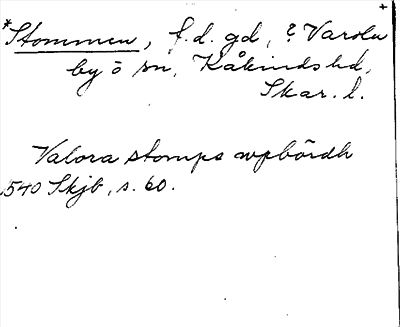 *Stommen, f.d. gd, ? Varola
by o sn, Kåkinds hd,
Skar. l.
Valora stomps wpbördh
1540 Skjb, s. 60.